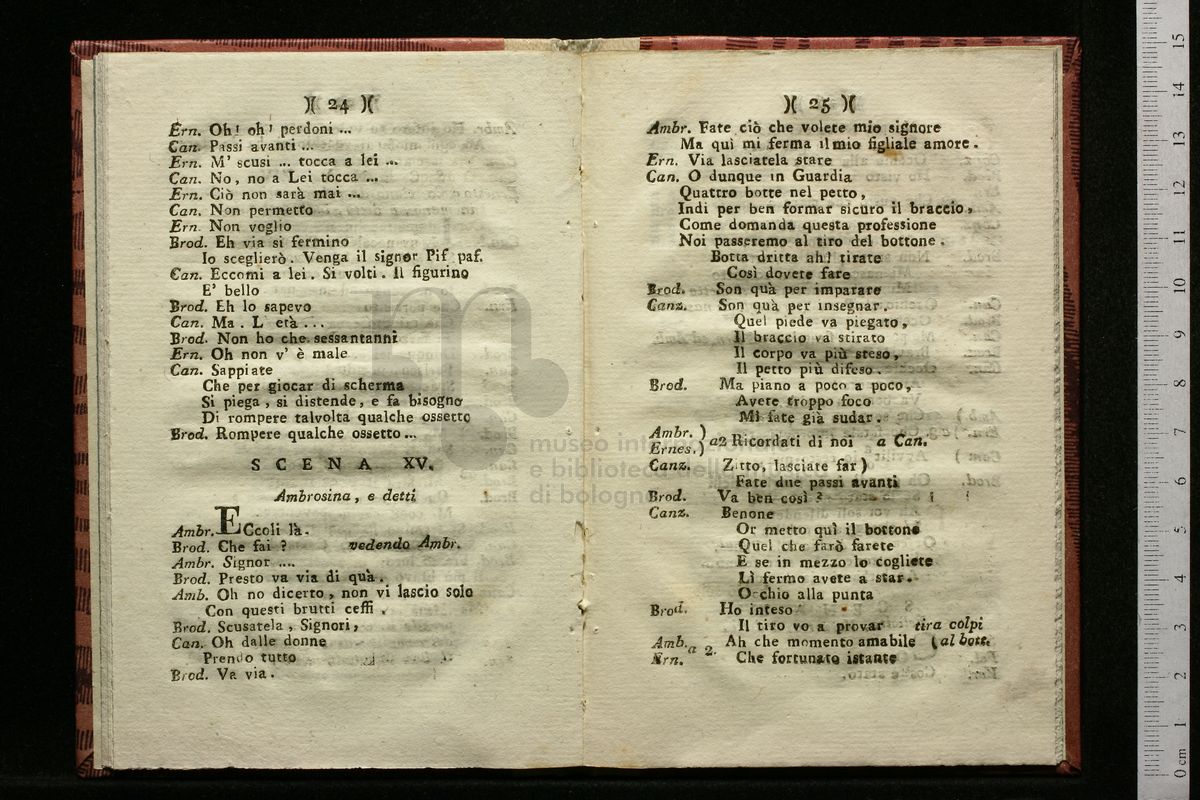 )( 24 )(
Ern. Oh! oh! perdoni ...
Can. Passi avanti ...
Ern. M' scusi ... tocca a lei ...
Can. No, no a Lei tocca ...
Ern. Ciò non sarà mai ...
Can. Non permetto
Ern. Non voglio
Brod. Eh via si fermino
Io sceglierò. Venga il signor Pif paf.
Can. Eccomi a lei. Si volti. Il figurino
E' bello
Brod. Eh lo sapevo
Can. Ma. L età ...
Brod. Non ho che sessantanni
Ern. Oh non v' è male
Can. Sappiate
Che per giocar di scherma
Si piega, si distende, e fa bisogno
Di rompere talvolta qualche ossetto
Brod. Rompere qualche ossetto ...
SCENA XV.
Ambrosina, e detti
Ambr. ECcoli là.
Brod. Che fai? vedendo Ambr.
Ambr. Signor ....
Brod. Presto va via di quà.
Amb. Oh no dicerto, non vi lascio solo
Con questi brutti ceffi.
Brod. Scusatela, Signori,
Can. Oh dalle donne
Prendo tutto
Brod. Va via.
)( 25 )(
Ambr. Fate ciò che volete mio signore
Ma quì mi ferma il mio figliale amore.
Ern. Via lasciatela stare
Can. O dunque in Guardia
Quattro botte nel petto,
Indi per ben formar sicuro il braccio,
Come domanda questa professione
Noi passeremo al tiro del bottone.
Botta dritta ah! tirate
Così dovete fare
Brod. Son quà per imparare
Canz. Son quà per insegnar.
Quel piede va piegato,
Il braccio va stirato
Il corpo va più steso,
Il petto più difeso.
Brod. Ma piano a poco a poco,
Avete troppo foco
Mi fate già sudar.
Ambr. )
Ernes. ) a2 Ricordati di noi a Can.
Canz. Zitto, lasciate far)
Fate due passi avanti
Brod. Va ben così?
Canz. Benone
Or metto quì il bottone
Quel che farò farete
E se in mezzo lo cogliete
Lì fermo avete a star.
Occhio alla punta
Brod. Ho inteso
Il tiro vo a provar tira colpi
Amb. a 2. Ah che momento amabile (al bott.
Ern. Che fortunato istante
museo
e biblioteca della
di bologna
0 cm 1 2 3 4 5 6 7 8 9 10 11 12 13 14 15